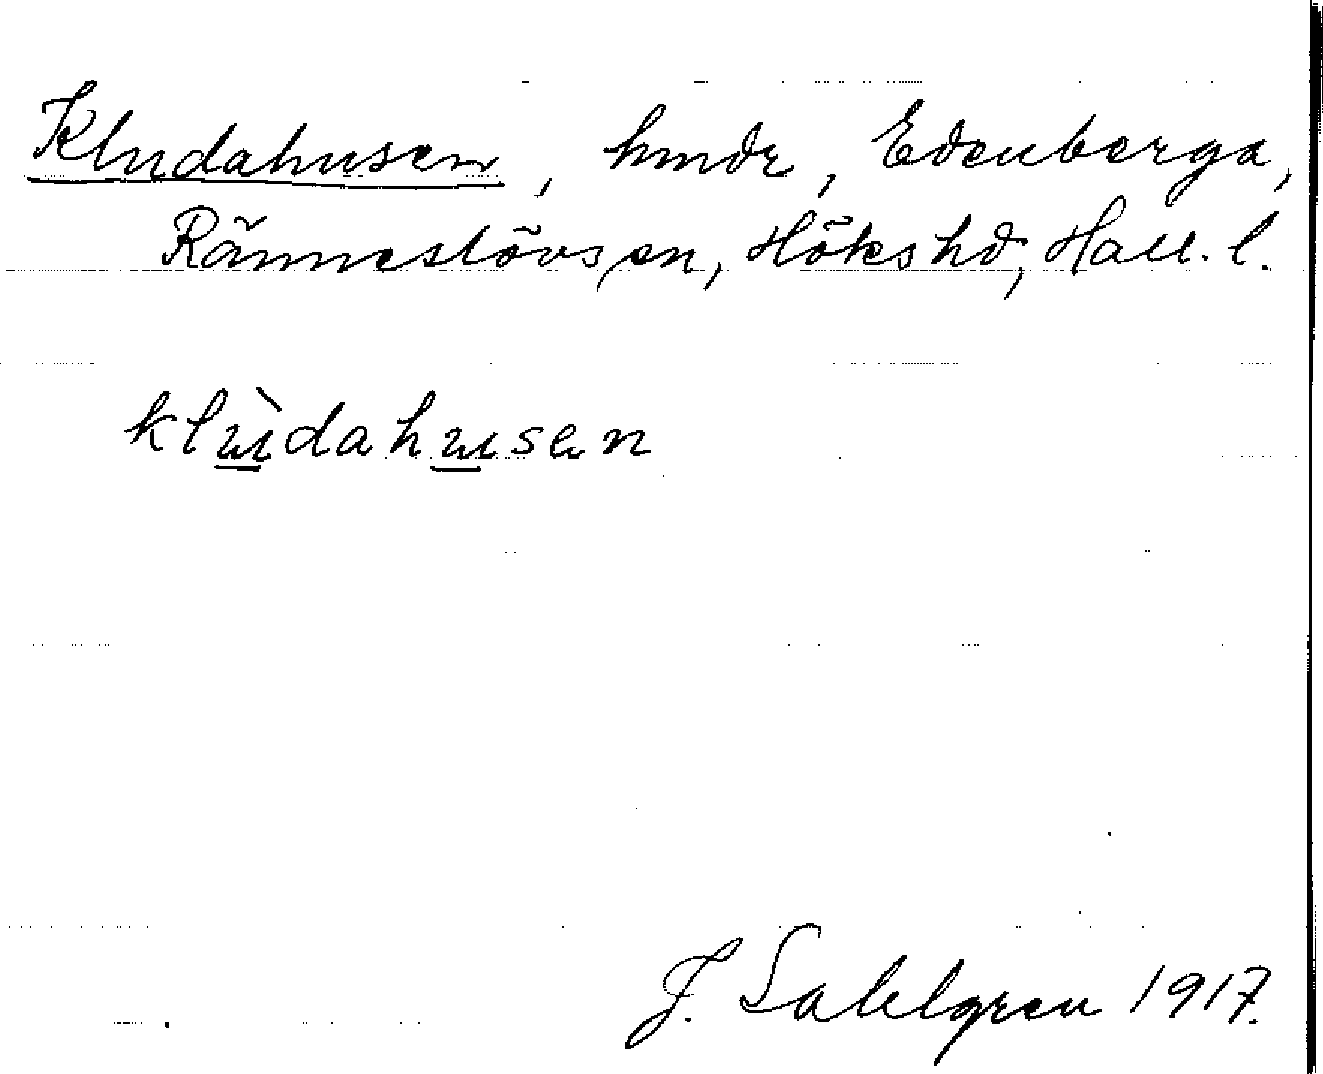 Kludahusen, hmdr, Edenberga,
Ränneslövs sn, Höks hd, Hall. l.
klùdahusen
J. Sahlgren 1917.